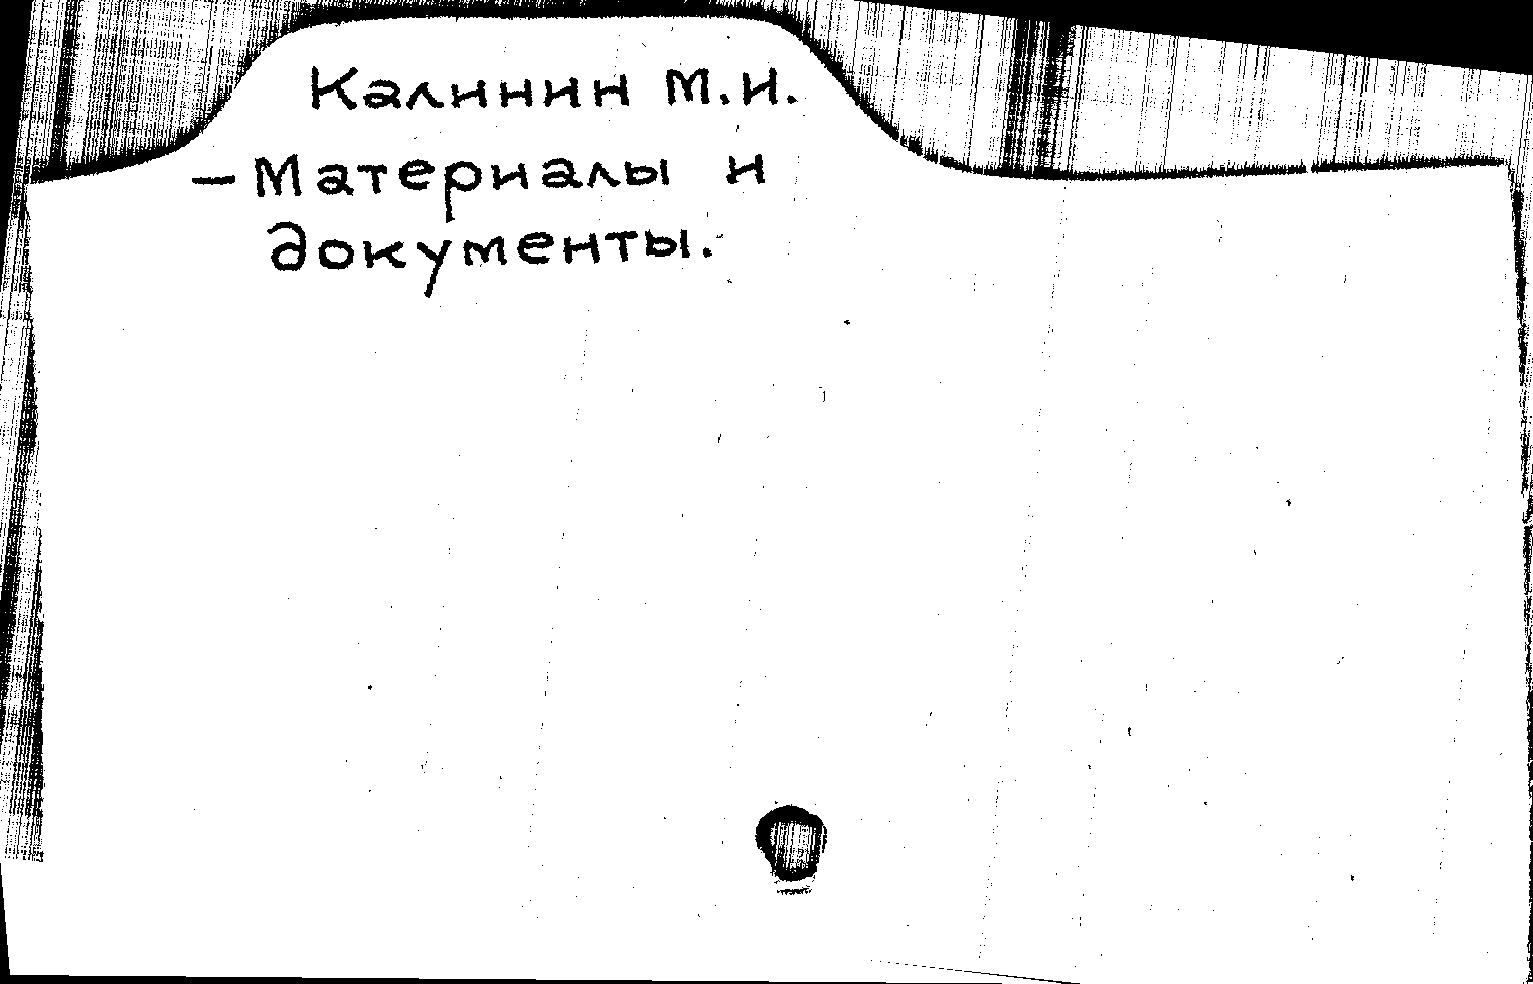 Калинин М.И.
— Материалы и
документы.